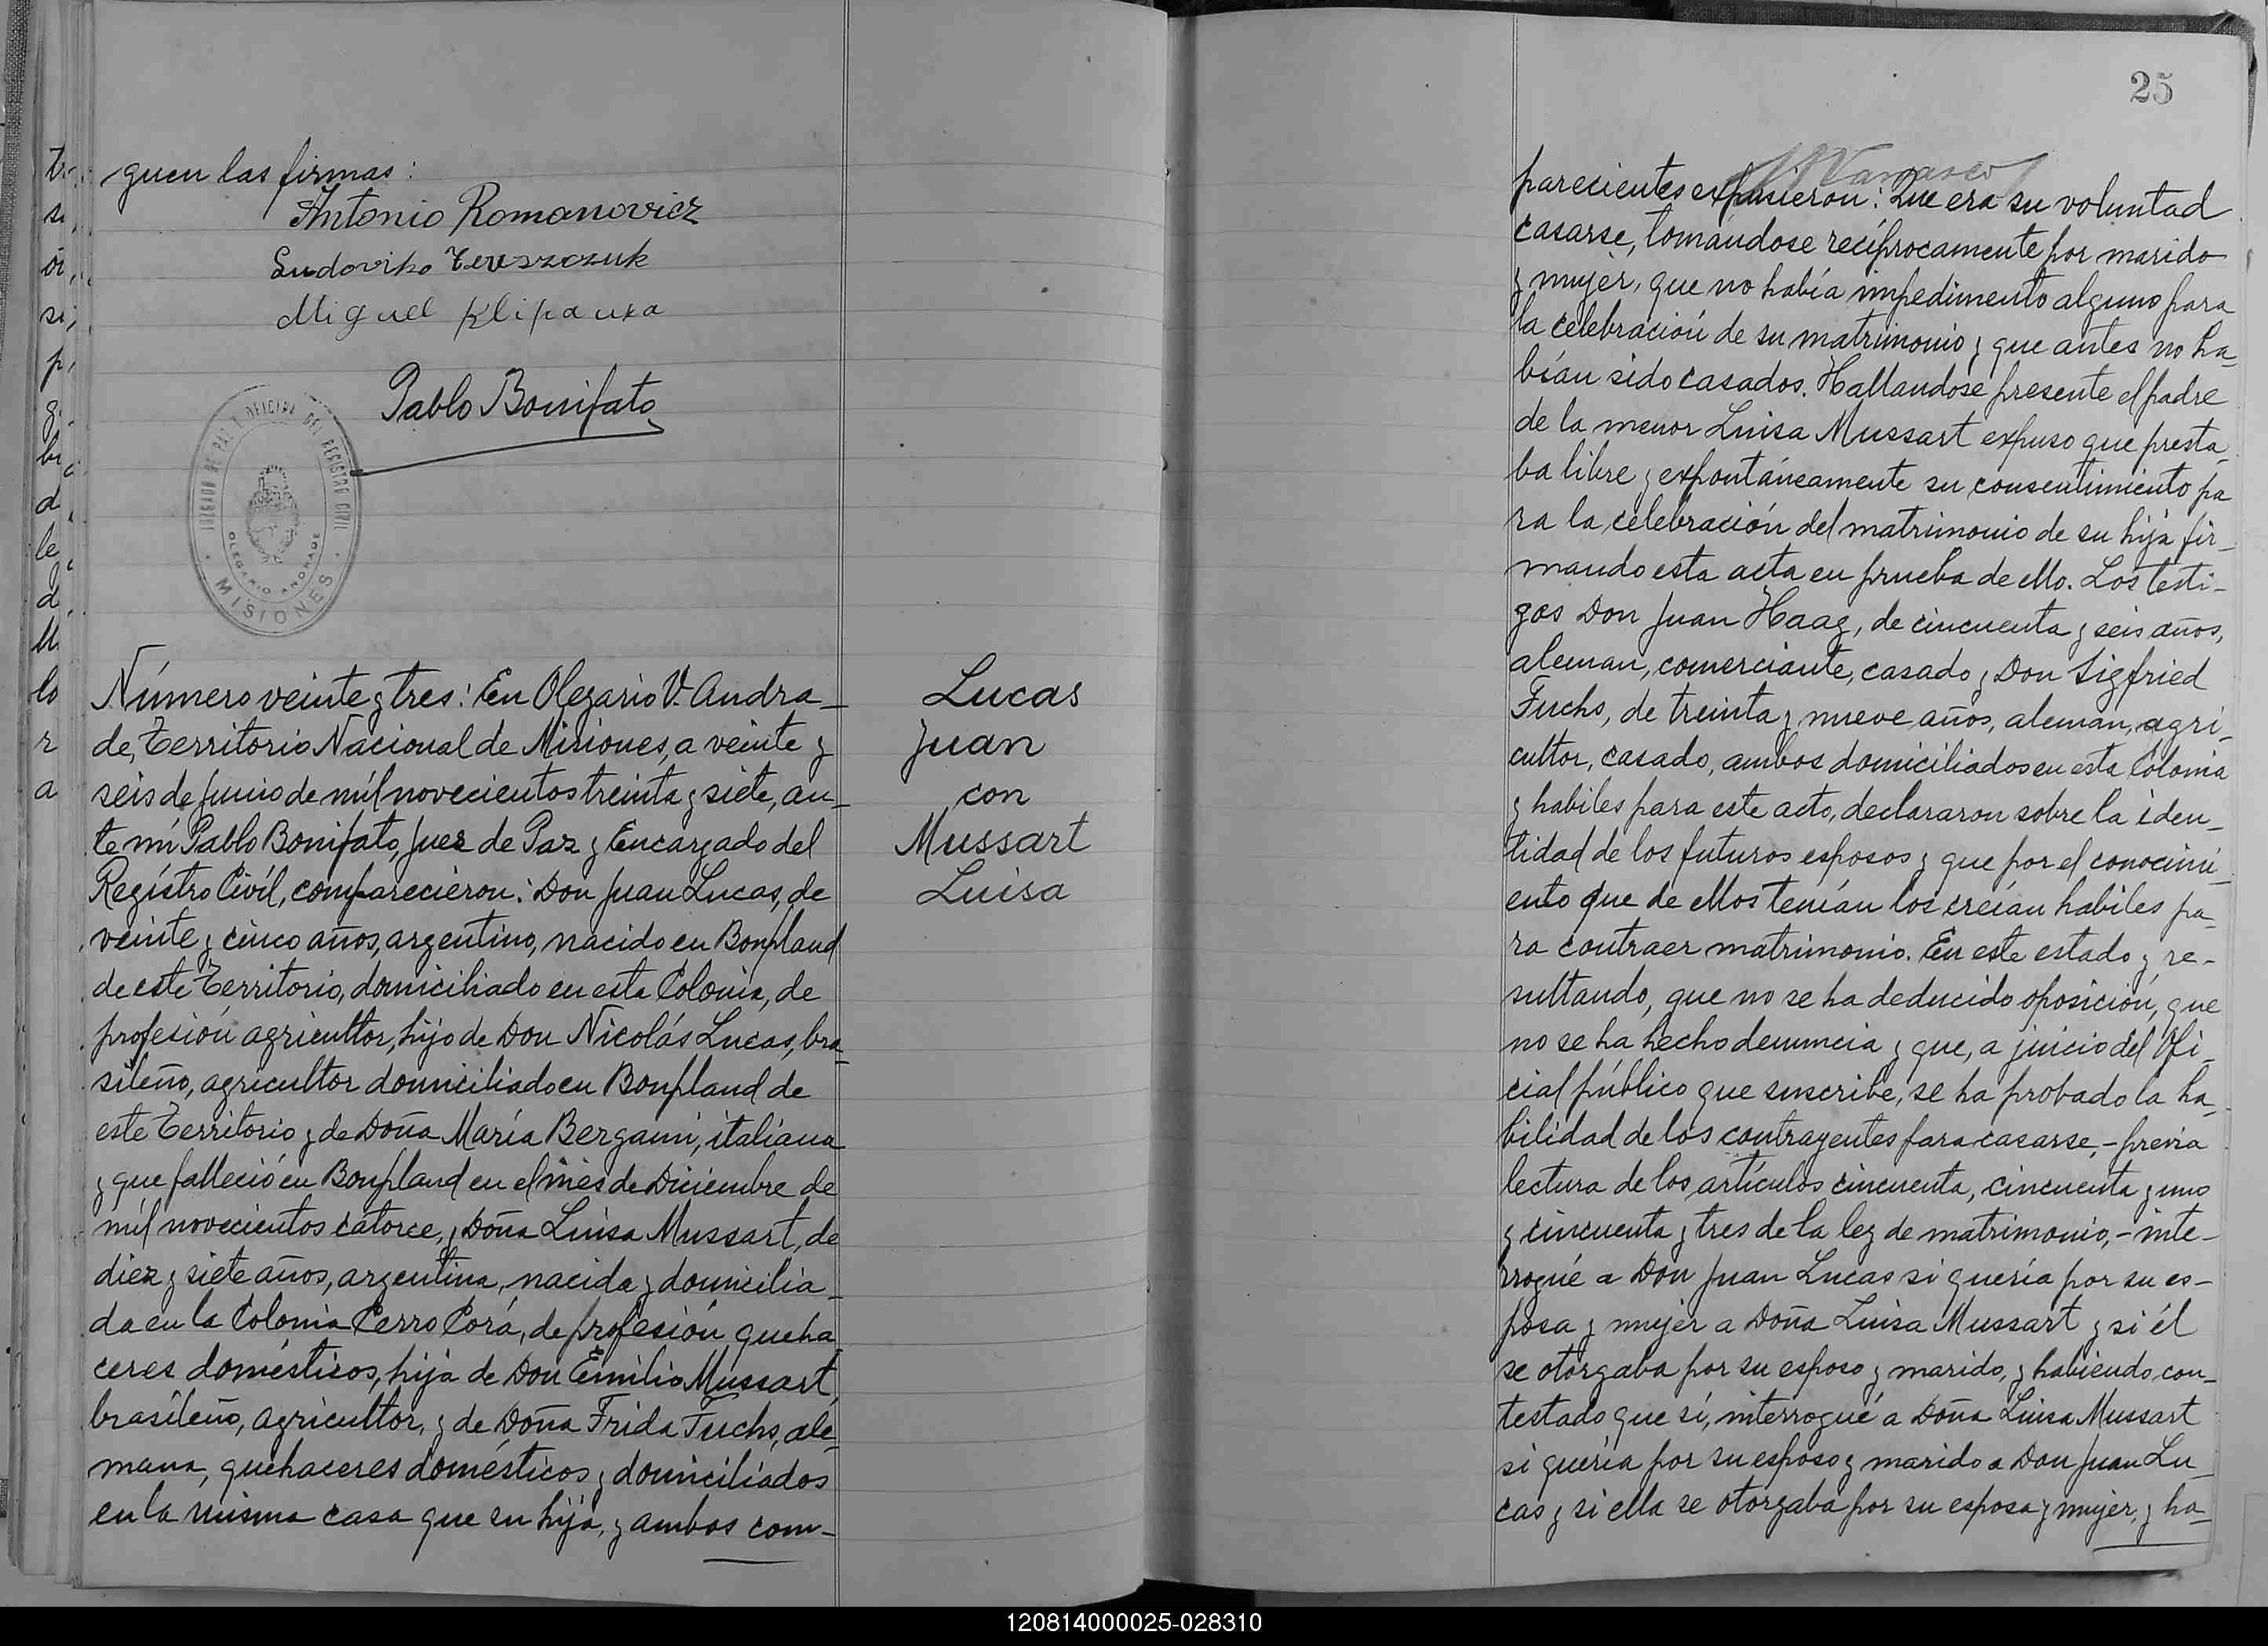 guen las firmas:
Antonio Romanovicz
Ludoviko Tereszczuk
Miguel Klipauka
Pablo Bonifato
JUZGADO DE PAZ Y OFICINA DEL REGISTRO CIVIL
OLEGARIO ANDRADE
MISIONES
Número veinte y tres: En Olegario V. Andra-
de, Territorio Nacional de Misiones, a veinte y
seis de Junio de mil novecientos treinta y siete, an-
te mí Pablo Bonifato, Juez de Paz y Encargado del
Registro Civíl, comparecieron: Don Juan Lucas, de
veinte y cinco años, argentino, nacido en Bonpland
de este Territorio, domiciliado en esta Colonia, de
profesión agricultor, hijo de Don Nicolás Lucas, bra-
sileño, agricultor domiciliado en Bonpland de
este Territorio y de Doña María Bergami, italiana
y que falleció en Bonpland en el mes de Diciembre de
mil novecientos catorce, y Doña Luisa Mussart, de
diez y siete años, argentina, nacida y domicilia-
da en la Colonia Cerro Corá, de profesión queha-
ceres domésticos, hija de Don Emilio Mussart,
brasileño, agricultor, y de Doña Frida Fuchs, ale-
mana, quehaceres domésticos y domiciliados
en la misma casa que su hija, y ambos com-
Lucas
Juan
con
Mussart
Luisa
25
parecientes expusieron: Que era su voluntad
casarse, tomándose recíprocamente por marido
y mujer, que no había impedimento alguno para
la celebración de su matrimonio y que antes no ha-
bían sido casados. Hallandose presente el padre
de la menor Luisa Mussart expuso que presta-
ba libre y expontáneamente su consentimiento pa
ra la celebración del matrimonio de su hija fir-
mando esta acta en prueba de ello. Los testi-
gos Don Juan Haag, de cincuenta y seis años,
aleman, comerciante, casado y Don Sigfried
Fuchs, de treinta y nueve años, aleman, agri-
cultor, casado, ambos domiciliados en esta Colonia
y habiles para este acto, declararon sobre la iden-
tidad de los futuros esposos y que por el conocimi-
ento que de ellos tenían los creían habiles pa-
ra contraer matrimonio. En este estado y re-
sultando, que no se ha deducido oposición, que
no se ha hecho denuncia y que, a juicio del Ofi-
cial público que suscribe, se ha probado la ha-
bilidad de los contrayentes para casarse,- previa
lectura de los artículos cincuenta, cincuenta y uno
y cincuenta y tres de la ley de matrimonio,- inte-
rrogué a Don Juan Lucas si quería por su es-
posa y mujer a Doña Luisa Mussart y si él
se otorgaba por su esposo y marido, y habiendo con-
testado que sí, interrogué a Doña Luisa Mussart
si quería por su esposo y marido a Don Juan Lu-
cas y si ella se otorgaba por su esposa y mujer, y ha-
120814000025-028310